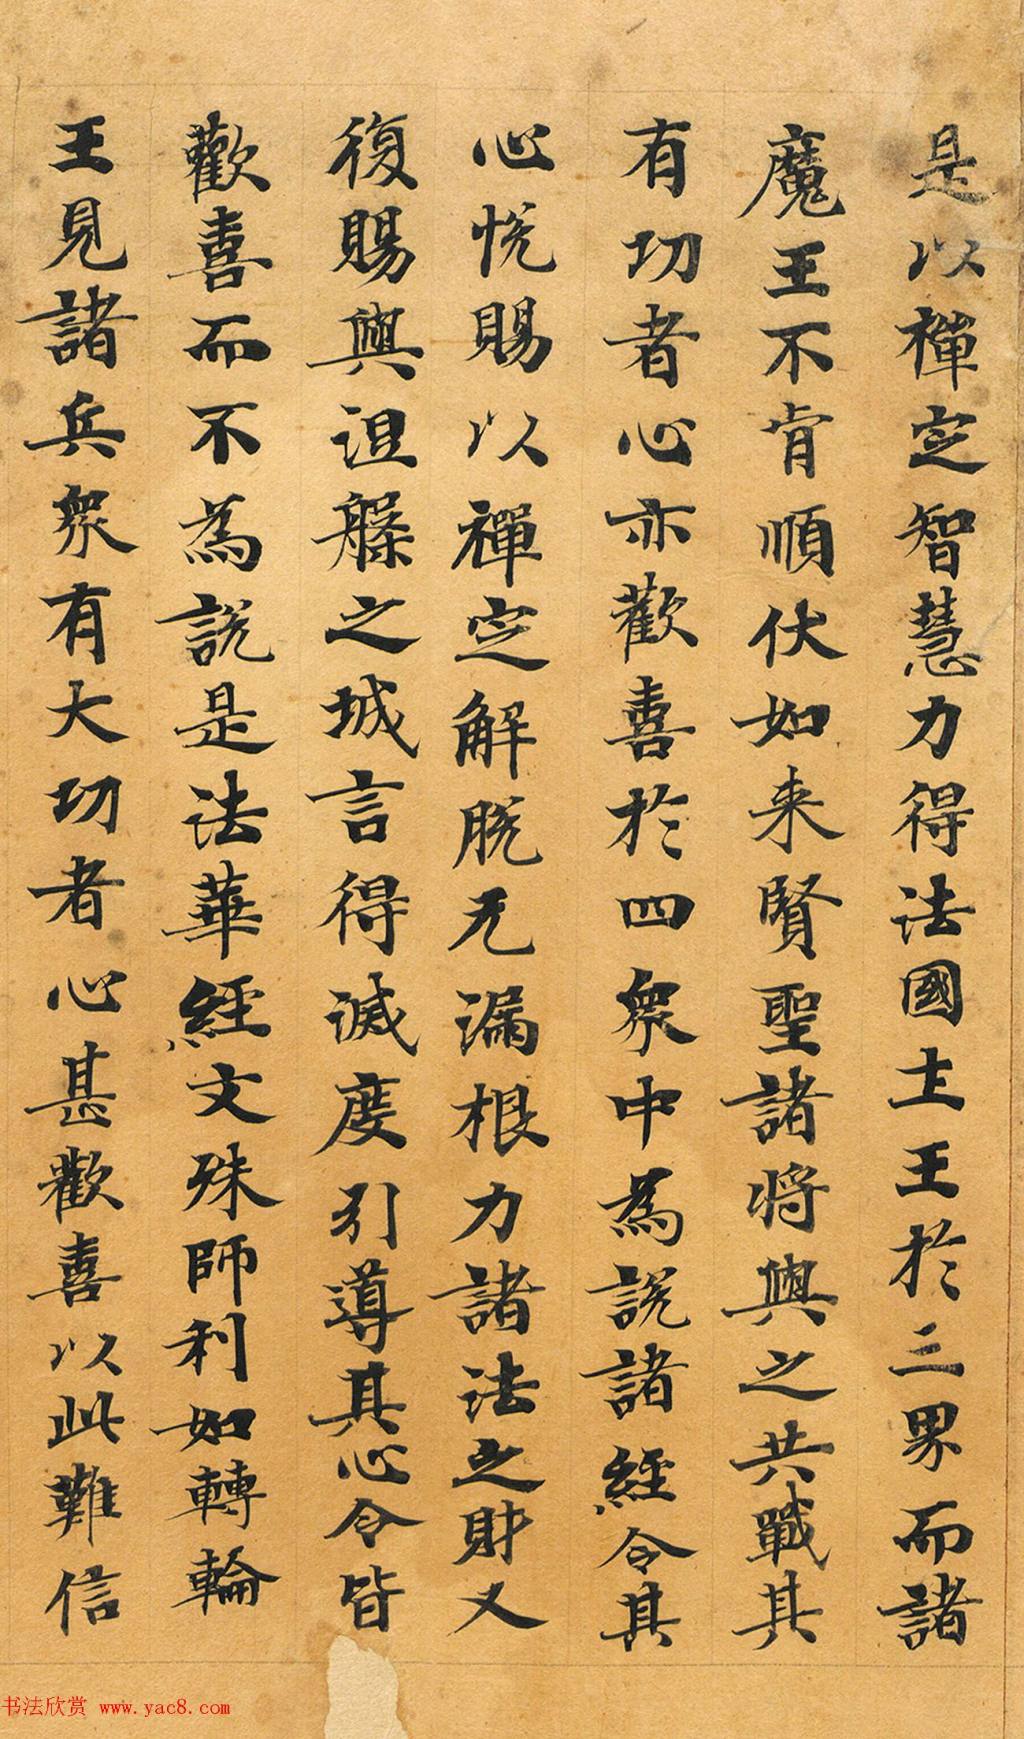 是以禪定智慧力得法國土王於三界而諸
魔王不肯順伏如来賢聖諸將與之共戰其
有功者心亦歡喜於四眾中為說諸經令其
心悅賜以禪定解脫无漏根力諸法之財又
復賜與涅槃之城言得滅度引導其心令皆
歡喜而不為說是法華經文殊師利如轉輪
王見諸兵眾有大功者心甚歡喜以此難信
书法欣赏 www.yac8.com